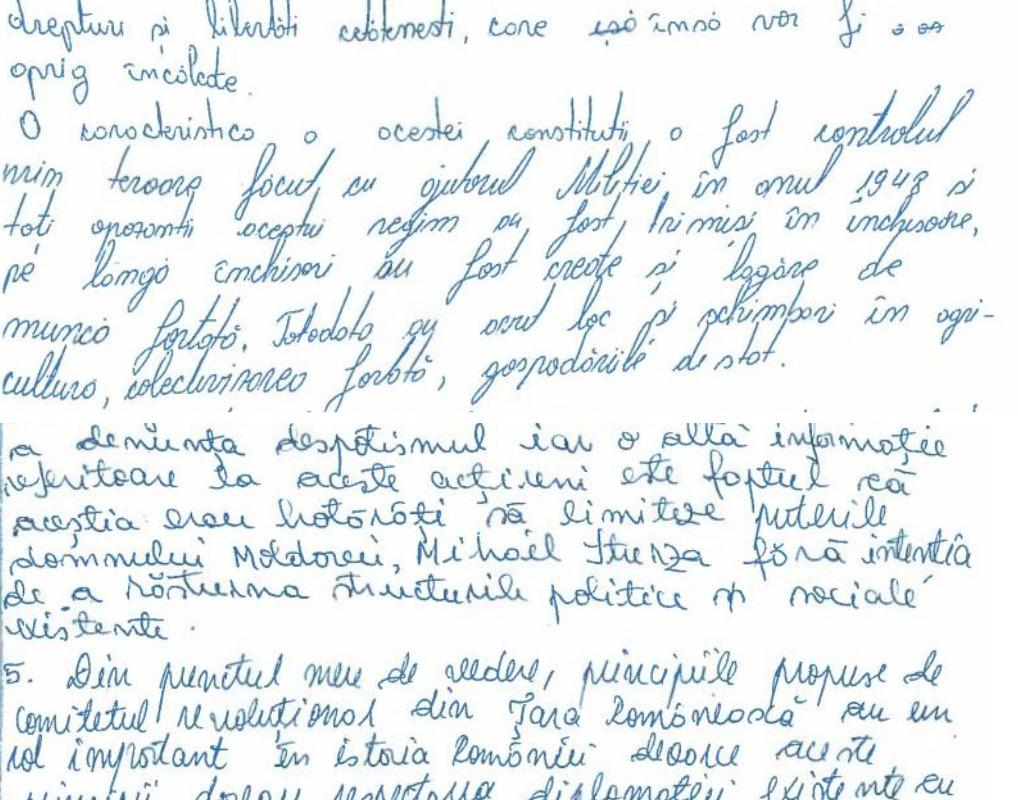 drepturi și libertăți cetățenesti, care însă vor fi
oprig încălcate.
O caracteristica a acestei constitutii, a fost controlul
prin teroare făcut, cu ajutorul Miliției, în anul 1948 și
toți oponentii acestui regim au fost trimiși în închisoare,
pe lângă închisori au fost create și lagăre de
muncă forțată. Totodata au avut loc și schimbari în agri-
cultura, colectivizarea forțată, gospodăriile de stat.
a denunța despotismul iar o altă informație
referitoare la aceste acțiuni este faptul că
aceștia erau hotărâți să limiteze puterile
domnului Moldovei, Mihail Sturza fără intentia
de a răsturna structurile politice și sociale
existente.
5. Din punctul meu de vedere, principiile propuse de
comitetul revoluționar din Țara Românească au un
rol important în istoria României deoarce aceste
diplomației existente cu